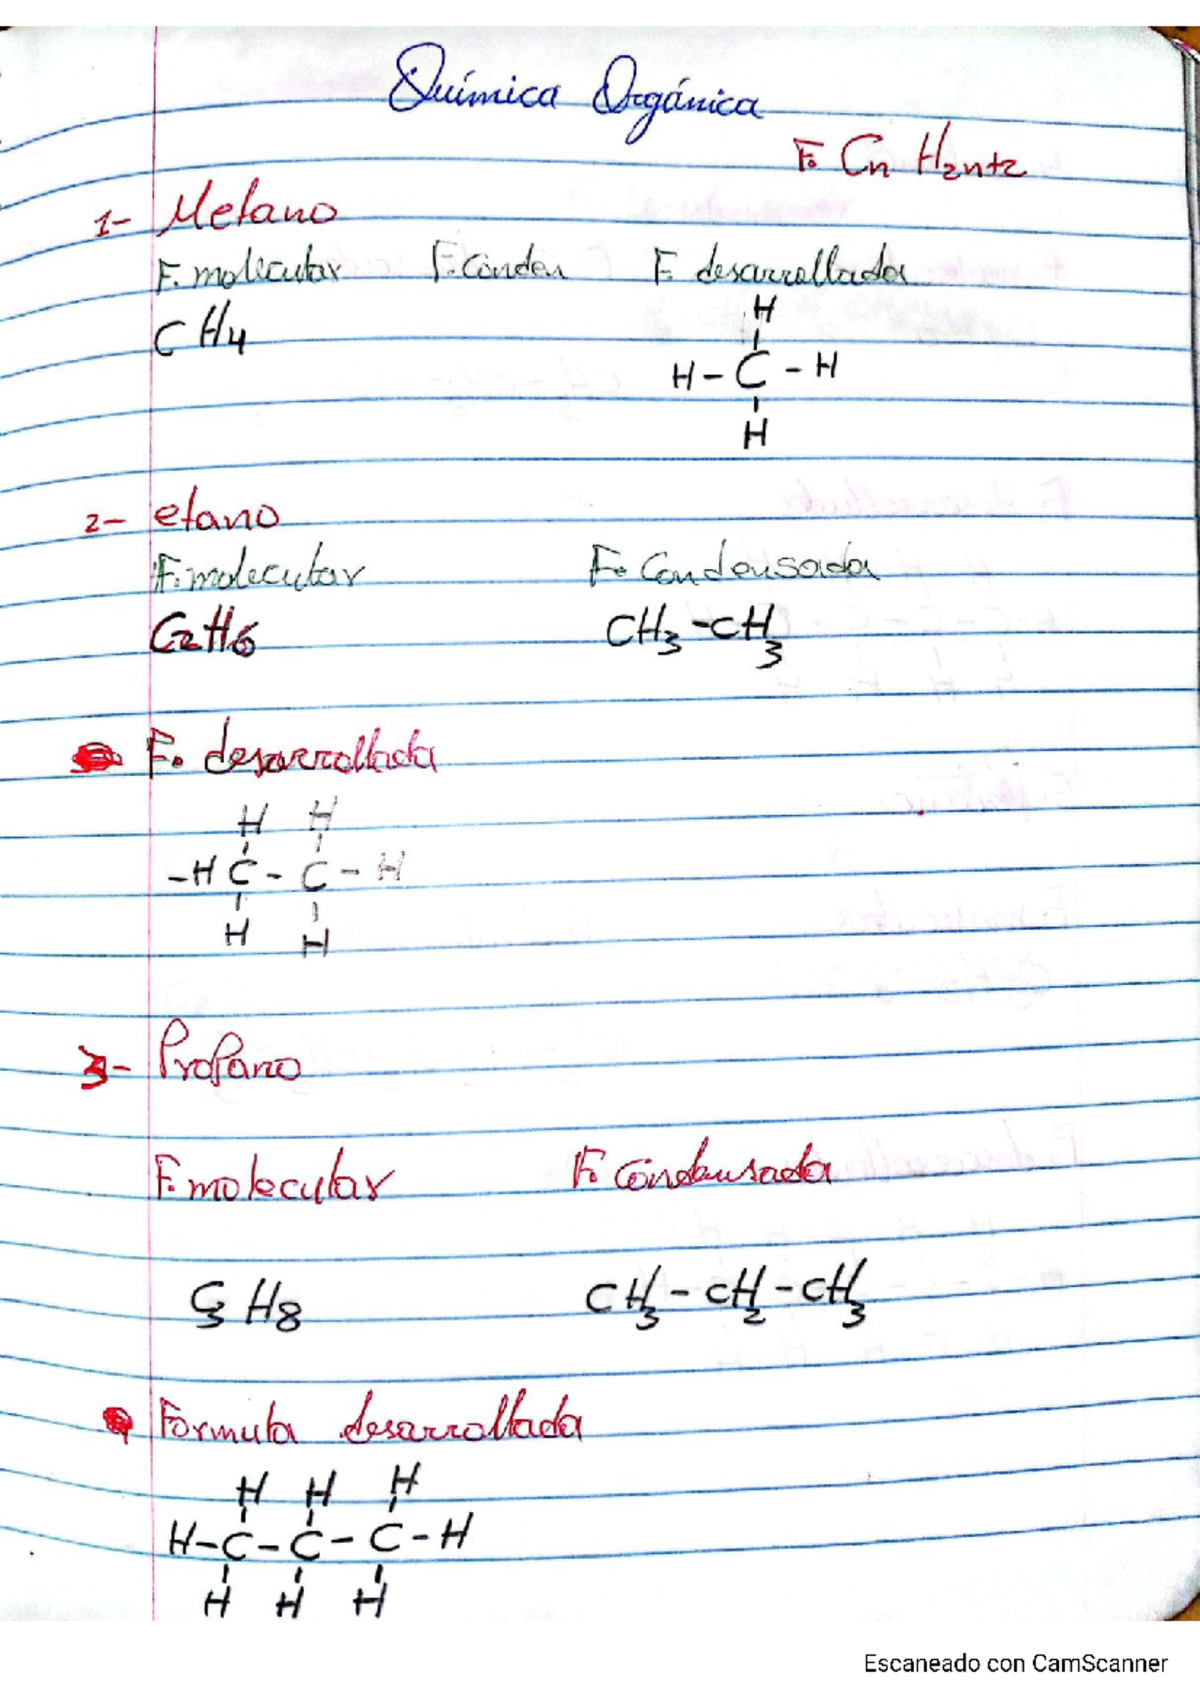 Química Orgánica
F. CnH2n+2
1- Metano
F. molecular F. Conden F. desarrollada
CH4
H
H-C-H
H
2- etano
F. molecular F. Condensada
C2H6 CH3-CH3
F. desarrollada
H H
-H C-C-H
H H
3- Propano
F. molecular F. Condensada
C3H8 CH3-CH2-CH3
Formula desarrollada
H H H
H-C-C-C-H
H H H
Escaneado con CamScanner